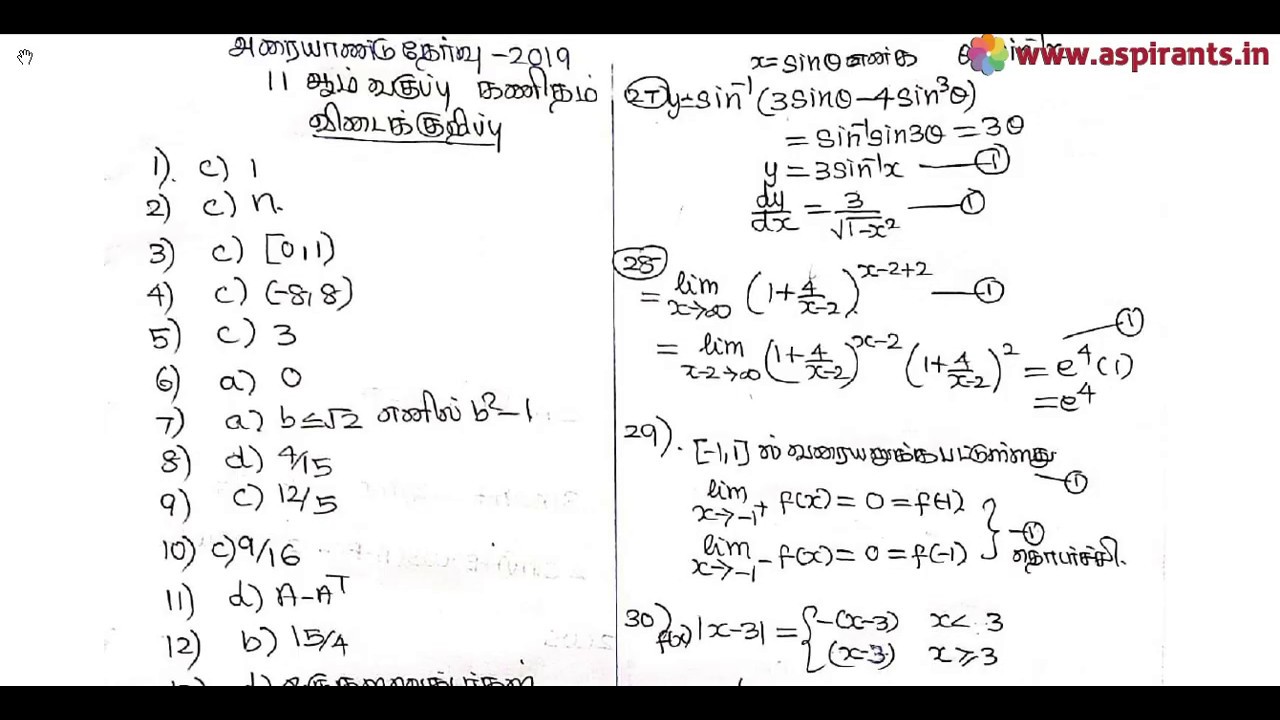 அரையாண்டு தேர்வு - 2019
11 ஆம் வகுப்பு கணிதம்
விடைக்குறிப்பு
1). c) 1
2) c) n.
3) c) [0,1)
4) c) (-8,8)
5) c) 3
6) a) 0
7) a) b≤√2 எனில் b²-1
8) d) 4/15
9) c) 12/5
10) c) 9/16
11) d) A-Aᵀ
12) b) 15/4
www.aspirants.in
x=sinθ என்க
27) y=sin⁻¹(3sinθ-4sin³θ)
= sin⁻¹sin3θ = 3θ
y = 3sin⁻¹x — ①
dy/dx = 3/√1-x² — ①
28
= lim x→∞ (1+4/x-2)^x-2+2 — ①
= lim x-2→∞ (1+4/x-2)^x-2 (1+4/x-2)² = e⁴(1) — ①
= e⁴
29). [-1,1] ல் வரையறுக்கபட்டுள்ளது — ①
lim x→-1⁺ f(x) = 0 = f(-1)
lim x→-1⁻ f(x) = 0 = f(-1) } — ① தொடர்ச்சி.
30) f(x) |x-3| = { -(x-3) x< 3
(x-3) x≥3